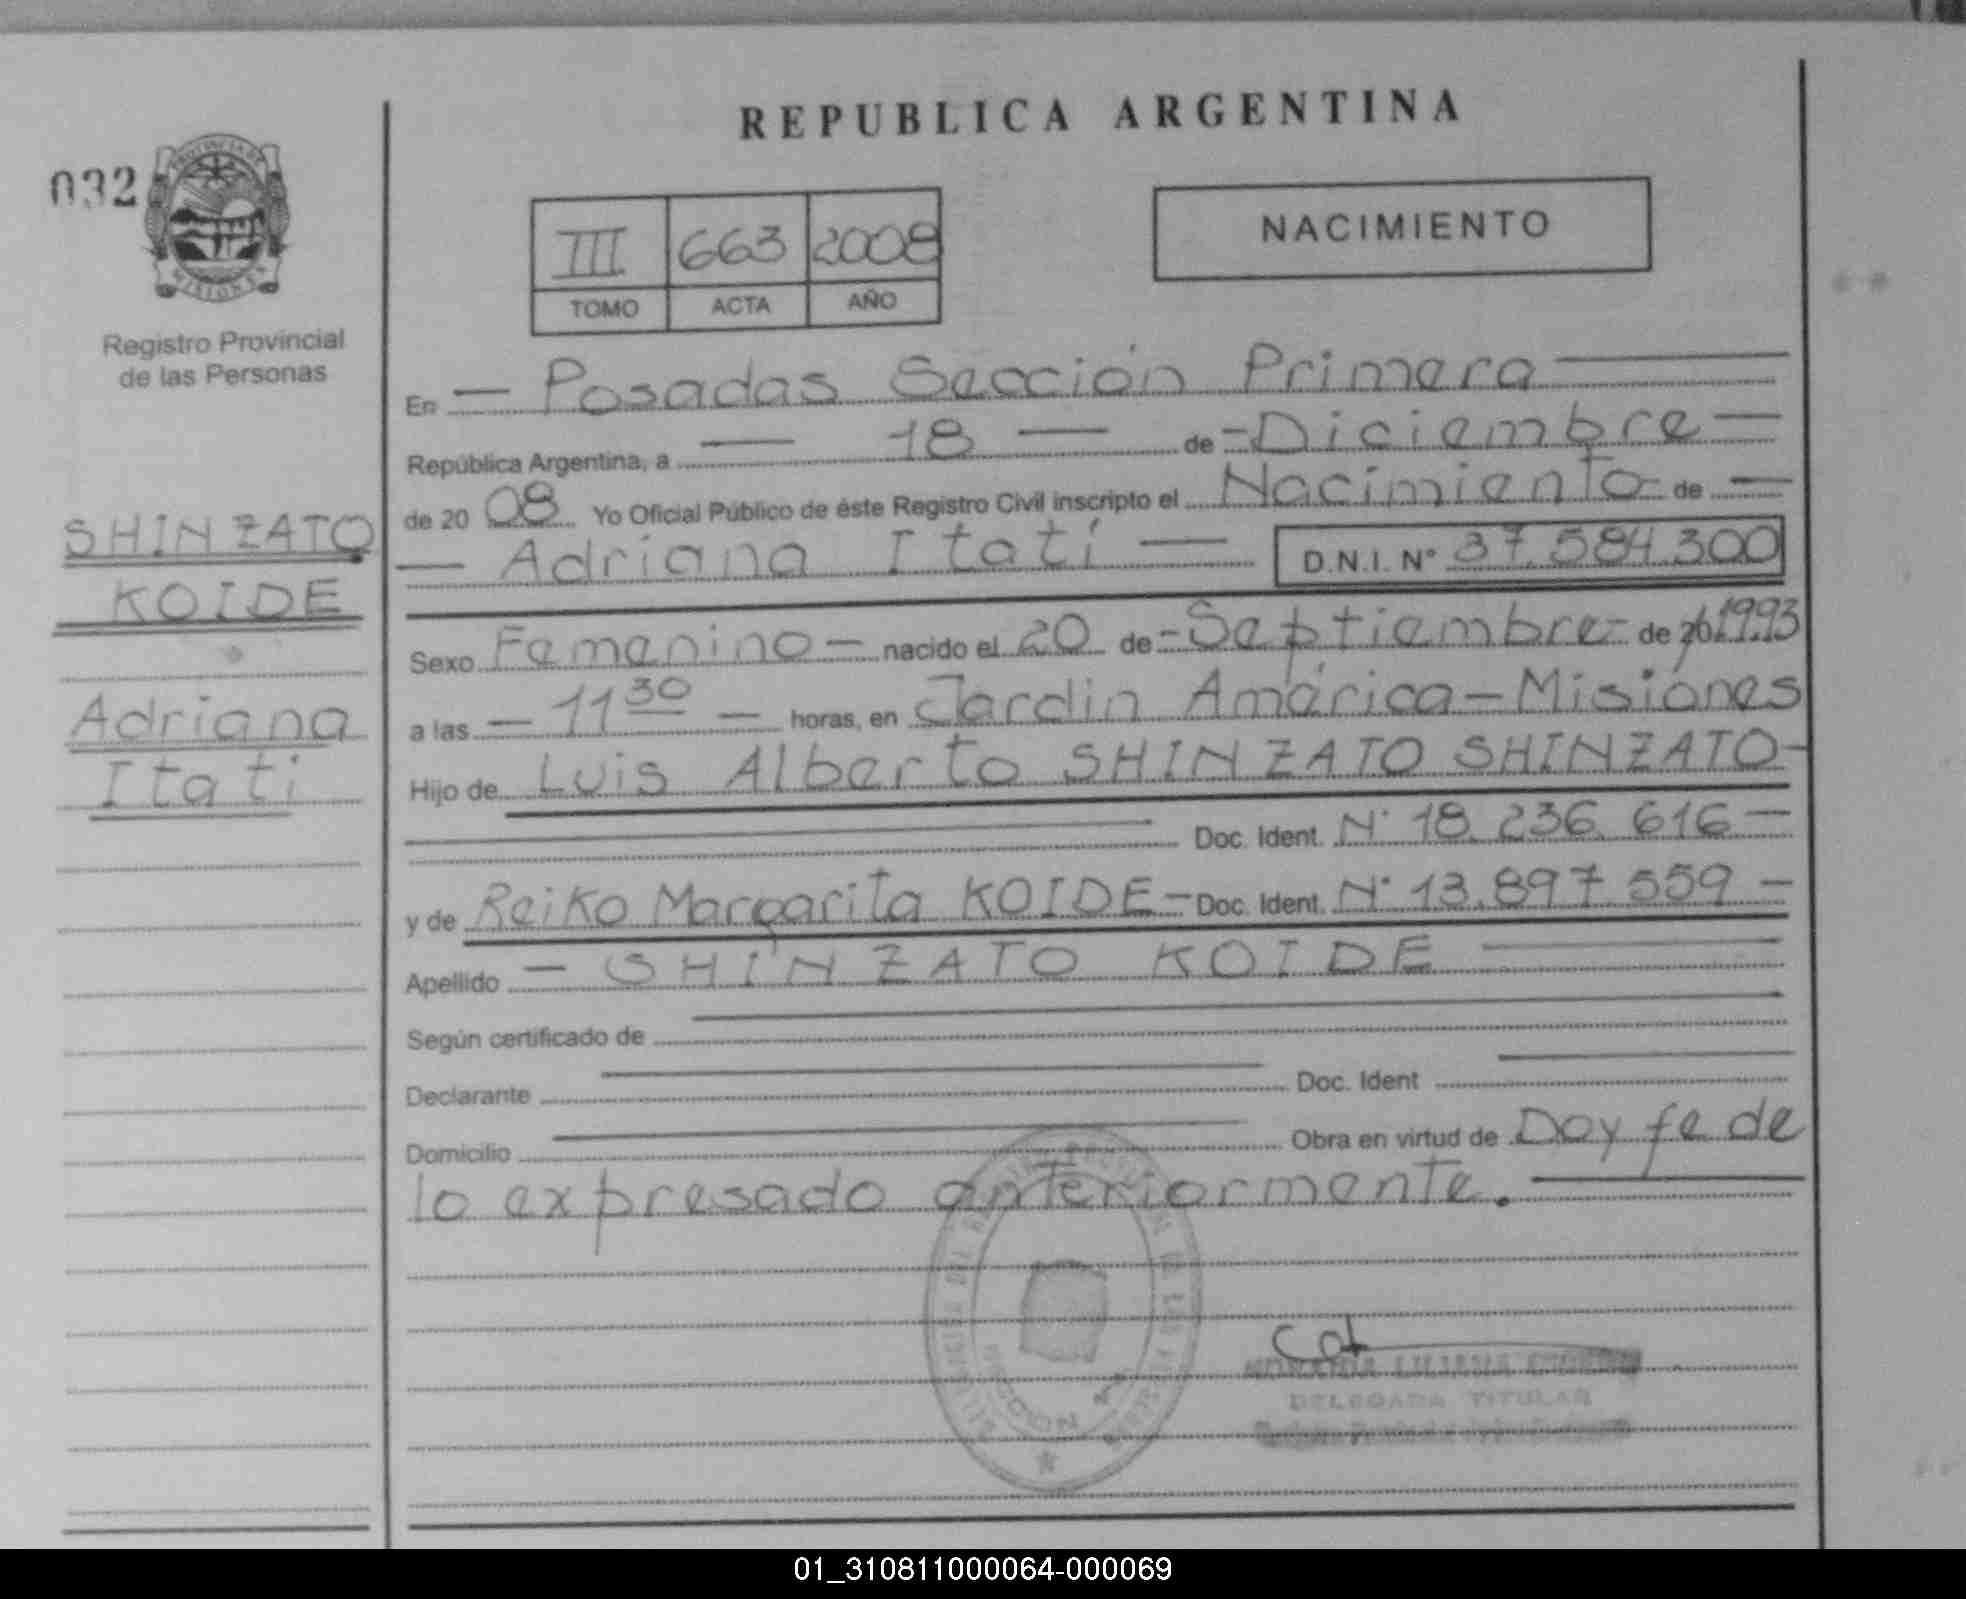 REPUBLICA ARGENTINA
032
PROVINCIA DE
MISIONES
Registro Provincial
de las Personas
III 663 2008
TOMO ACTA AÑO
NACIMIENTO
SHINZATO
KOIDE
Adriana
Itati
En — Posadas Sección Primera —
República Argentina, a — 18 — de - Diciembre —
de 20 08 Yo Oficial Público de éste Registro Civil inscripto el Nacimiento - de —
— Adriana Itatí — D.N.I. N° 37.584.300
Sexo Femenino — nacido el 20 de - Septiembre - de 20 1993
a las — 11 30 — horas, en Jardín América - Misiones
Hijo de Luis Alberto SHINZATO SHINZATO -
Doc. Ident. N° 18.236.616 —
y de Reiko Margarita KOIDE - Doc. Ident. N° 13.897.559 —
Apellido — SHINZATO KOIDE —
Según certificado de
Declarante Doc. Ident
Domicilio Obra en virtud de Doy fe de
lo expresado anteriormente.
LILIANA
DELEGADA TITULAR
SECCION
01_310811000064-000069